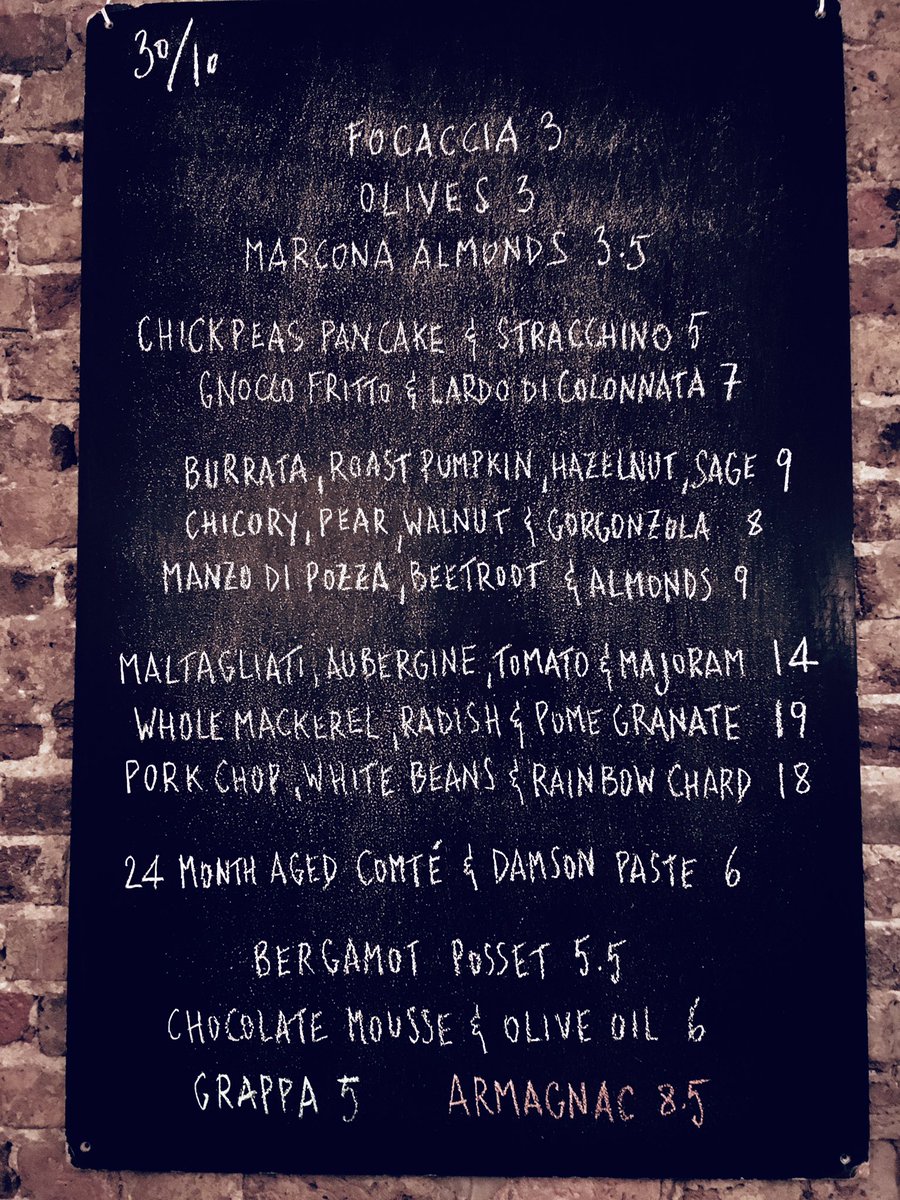 30/10
FOCACCIA 3
OLIVES 3
MARCONA ALMONDS 3.5
CHICKPEAS PANCAKE & STRACCHINO 5
GNOCCO FRITTO & LARDO DI COLONNATA 7
BURRATA, ROAST PUMPKIN, HAZELNUT, SAGE 9
CHICORY, PEAR, WALNUT & GORGONZOLA 8
MANZO DI POZZA, BEETROOT & ALMONDS 9
MALTAGLIATI, AUBERGINE, TOMATO & MAJORAM 14
WHOLE MACKEREL, RADISH & POME GRANATE 19
PORK CHOP, WHITE BEANS & RAINBOW CHARD 18
24 MONTH AGED COMTÉ & DAMSON PASTE 6
BERGAMOT POSSET 5.5
CHOCOLATE MOUSSE & OLIVE OIL 6
GRAPPA 5 ARMAGNAC 8.5